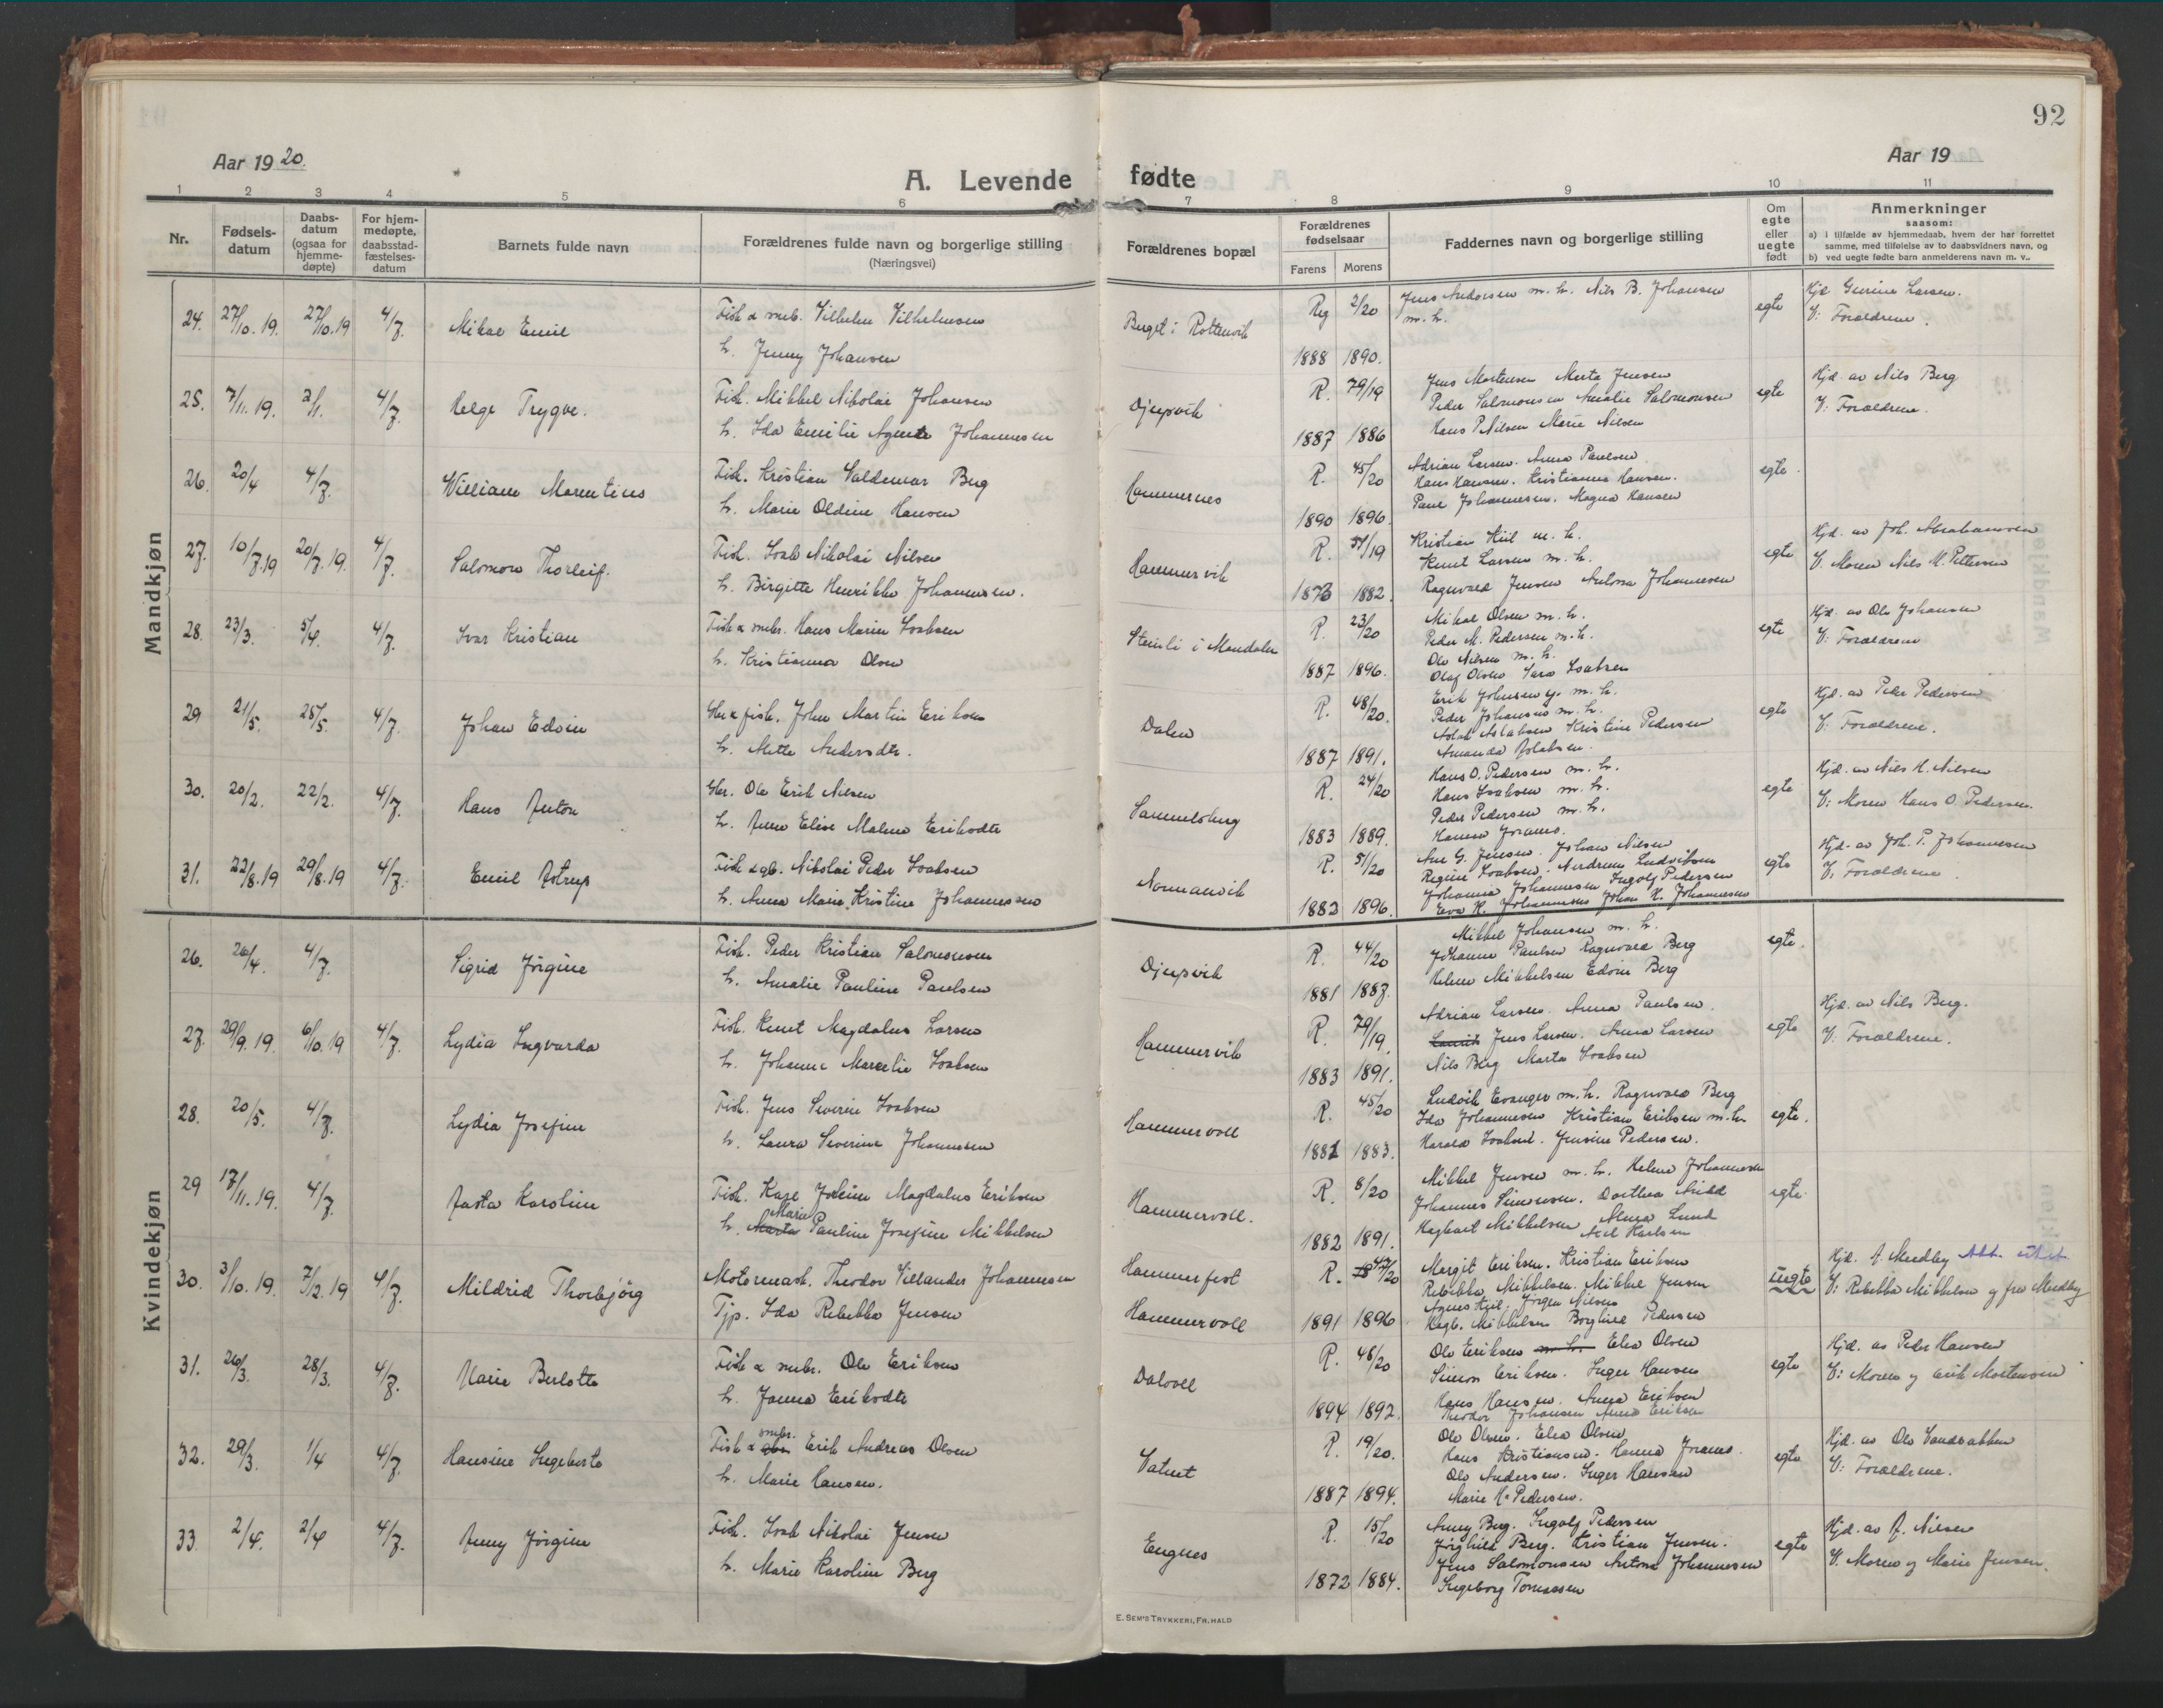 92
Aar 1920.
Aar 19
A. Levende fødte
1 2 3 4 5 6 7 8 9 10 11
Nr.
Fødsels-
datum
Daabs-
datum
(ogsaa for
hjemme-
døpte)
For hjem-
medøpte,
daabsstad-
fæstelses-
datum
Barnets fulde navn
Forældrenes fulde navn og borgerlige stilling
(Næringsvei)
Forældrenes bopæl
Forældrenes
fødselsaar
Farens Morens
Faddernes navn og borgerlige stilling
Om
egte
eller
uegte
født
Anmerkninger
saasom:
a) i tilfælde av hjemmedaab, hvem der har forrettet
samme, med tilføielse av to daabsvidners navn, og
b) ved uegte fødte barn anmelderens navn m. v..
Mandkjøn
24. 27/10.19. 27/10.19 4/7. Mikal Emil
Fisk & smbr. Vilhelm Vilhelmsen
h. Jenny Johansen
Berget i Rottenvik
Reg 2/20
1888 1890.
Jens Andersen m. h. Nils B. Johansen
m. h.
egte
Hjd. Gurine Larsen.
V: Forældrene.
25. 7/11.19. 2/1. 4/7. Helge Trygve.
Fisk. Mikkel Nikolai Johansen
h. Ida Emilie Agente Johannesen
Djupvik
R. 79/19
1887 1886
Jens Mortensen Meta Jensen
Peder Salomonsen Amalie Salomonsen
Hans P Nilsen Marie Nilsen
egte
Hjd. av Nils Berg
V: Forældrene.
26. 20/4 4/7. William Marentius
Fisk. Kristian Valdemar Berg
h. Marie Oldine Hansen
Hammernes
R. 45/20
1890 1896.
Adrian Larsen. Anna Paulsen.
Hans Hansen. Kristianna Hansen.
Paul Johannesen. Magna Hansen
egte
27. 10/7.19 20/7.19. 4/7. Salomon Thorleif.
Fisk. Isak Nikolai Nilsen
h. Birgitte Henrikke Johannesen.
Hammervik
R. 51/19
1876 1882.
Kristian Kiil m. h.
Knut Larsen m. h.
Ragnvald Jensen Antona Johannesen
egte
Hjd. av Joh. Abrahamsen
V. Moren Nils M. Pettersen
28. 23/3. 5/4. 4/7. Ivar Kristian
Fisk & smbr. Hans Marin Isaksen
h. Kristianna Olsen
Steinli i Mandalen
R. 23/20
1887 1896.
Mikal Olsen m. h.
Peder M. Pedersen m. h.
Ole Nilsen m. h.
Olaf Olsen Sara Isaksen
egte
Hjd. av Ole Johansen
V: Forældrene
29 21/5. 25/5. 4/7. Johan Edvin
Gbr & fisk. John Martin Eriksen
h. Mette Andersdtr.
Dalen
R. 48/20.
1887 1891.
Erik Johnseng. m. h.
Peder Johansen m. h.
Aslak Aslaksen Kristine Pedersen
Amanda Aslaksen.
egte
Hjd. av Peder Pedersen
V: Forældrene.
30. 20/2. 22/2. 4/7. Hans Anton
Gbr. Ole Erik Nilsen
h. Anne Elise Malene Eriksdtr
Samuelsberg
R. 24/20
1883 1889.
Hans O. Pedersen m. h.
Hans Isaksen m. h.
Peder Pedersen m. h.
Hanna Joramo.
egte
Hjd. av Nils H. Nilsen
V: Moren Hans O. Pedersen.
31. 22/8.19 29/8.19 4/7. Emil Astrup
Fisk & gb. Nikolai Peder Isaksen
h. Anna Marie Kristine Johannessen
Normanvik
R. 51/20
1882 1896.
Ane G. Jensen. Johan Nilsen
Regine Isaksen. Andreas Ludviksen
Johanna Johannesen Ingolf Pedersen
Eva K. Johannesen Johan H. Johannesen
egte
Hjd. av Joh. P. Johannesen
V. Forældrene.
Kvindekjøn
26. 26/4. 4/7. Sigrid Jørgine
Fisk. Peder Kristian Salomonsen
h. Amalie Pauline Paulsen
Djupvik
R. 44/20
1881 1887.
Mikkel Johansen m. h.
Johanne Paulsen Ragnvald Berg
Helene Mikkelsen Edvin Berg
egte.
27. 29/9.19. 6/10.19 4/7. Lydia Ingvarda
Fisk. Knut Magdalus Larsen
h. Johanne Marcelie Isaksen
Hammervik
R. 79/19.
1883 1891.
Adrian Larsen. Anna Paulsen.
Jens Larsen. Anna Larsen
Nils Berg Marta Isaksen
egte
Hjd. av Nils Berg.
V: Forældrene.
28. 20/5. 4/7. Lydia Josefine
Fisk. Jens Severin Isaksen
h. Laura Severine Johannessen
Hammervoll
R. 45/20
1881 1883.
Ludvik Evanger m. h. Ragnvald Berg
Ida Johannesen Kristian Eriksen m. h.
Harald Isaksen. Jensine Pedersen.
egte.
29 17/11.19. 4/7. Aasta Karoline
Fisk. Kasp Joakim Magdalus Eriksen
h. Marta Marie Pauline Josefine Mikkelsen
Hammervoll.
R. 8/20
1882 1891.
Mikkel Jensen m. h. Helene Johannesen
Johannes Simonsen. Dorthea
Hagbart Mikkelsen Alma Lund
Karlsen
egte.
30. 3/10.19. 7/12.19 4/7. Mildrid Thorbjørg
Motormask. Theodor Villander Johannesen
Tjp. Ida Rebekka Jensen
Hammerfest
Hammervoll
R. 47/20
1891 1896
Margit Eriksen. Kristian Eriksen
Rebekka Mikkelsen. Mikkel Jensen
Agnes Kiil. Jørgen Nilsen
Hagb. Mikkelsen Borghild Pedersen
uegte
Hjd. A. Mendby
V: Rebekka Mikkelsen og fru Mendby
31. 26/3. 28/3. 4/7. Marie Berlotte
Fisk & smbr. Ole Eriksen
h. Janna Eriksdtr
Dalvoll
R. 48/20
1894 1892.
Ole Eriksen m. h. Elea Olsen
Simon Eriksen. Inger Hansen
Hans Hansen. Anna Eriksen
Theodor Johansen Anna Eriksen
egte
Hjd. av Peder Hansen
V: Moren og Erik Mortensen
32. 29/3. 1/4 4/7. Hansine Ingeberto
Fisk & gbr. smbr. Erik Andreas Olsen
h. Marie Hansen.
Vatnet
R. 19/20.
1887 1894.
Ole Olsen. Elea Olsen
Hans Kristiansen. Hanna Joramo.
Ole Andersen. Inger Hansen
Marie H. Pedersen.
egte
Hjd. av Ole Sandvabben
V: Forældrene.
33. 2/4. 2/4 4/7. Anny Jørgine
Fisk. Isak Nikolai Jensen
h. Marie Karoline Berg
Engnes
R. 15/20
1872 1884.
Anny Berg. Ingolf Pedersen
Jørghild Berg. Kristian Jensen.
Jens Salomonsen Antona Johannesen
Ingeborg Tomassen
egte
Hjd. av A. Nilsen
V. Moren og Marie Jensen.
E. SEM'S TRYKKERI, FR.HALD